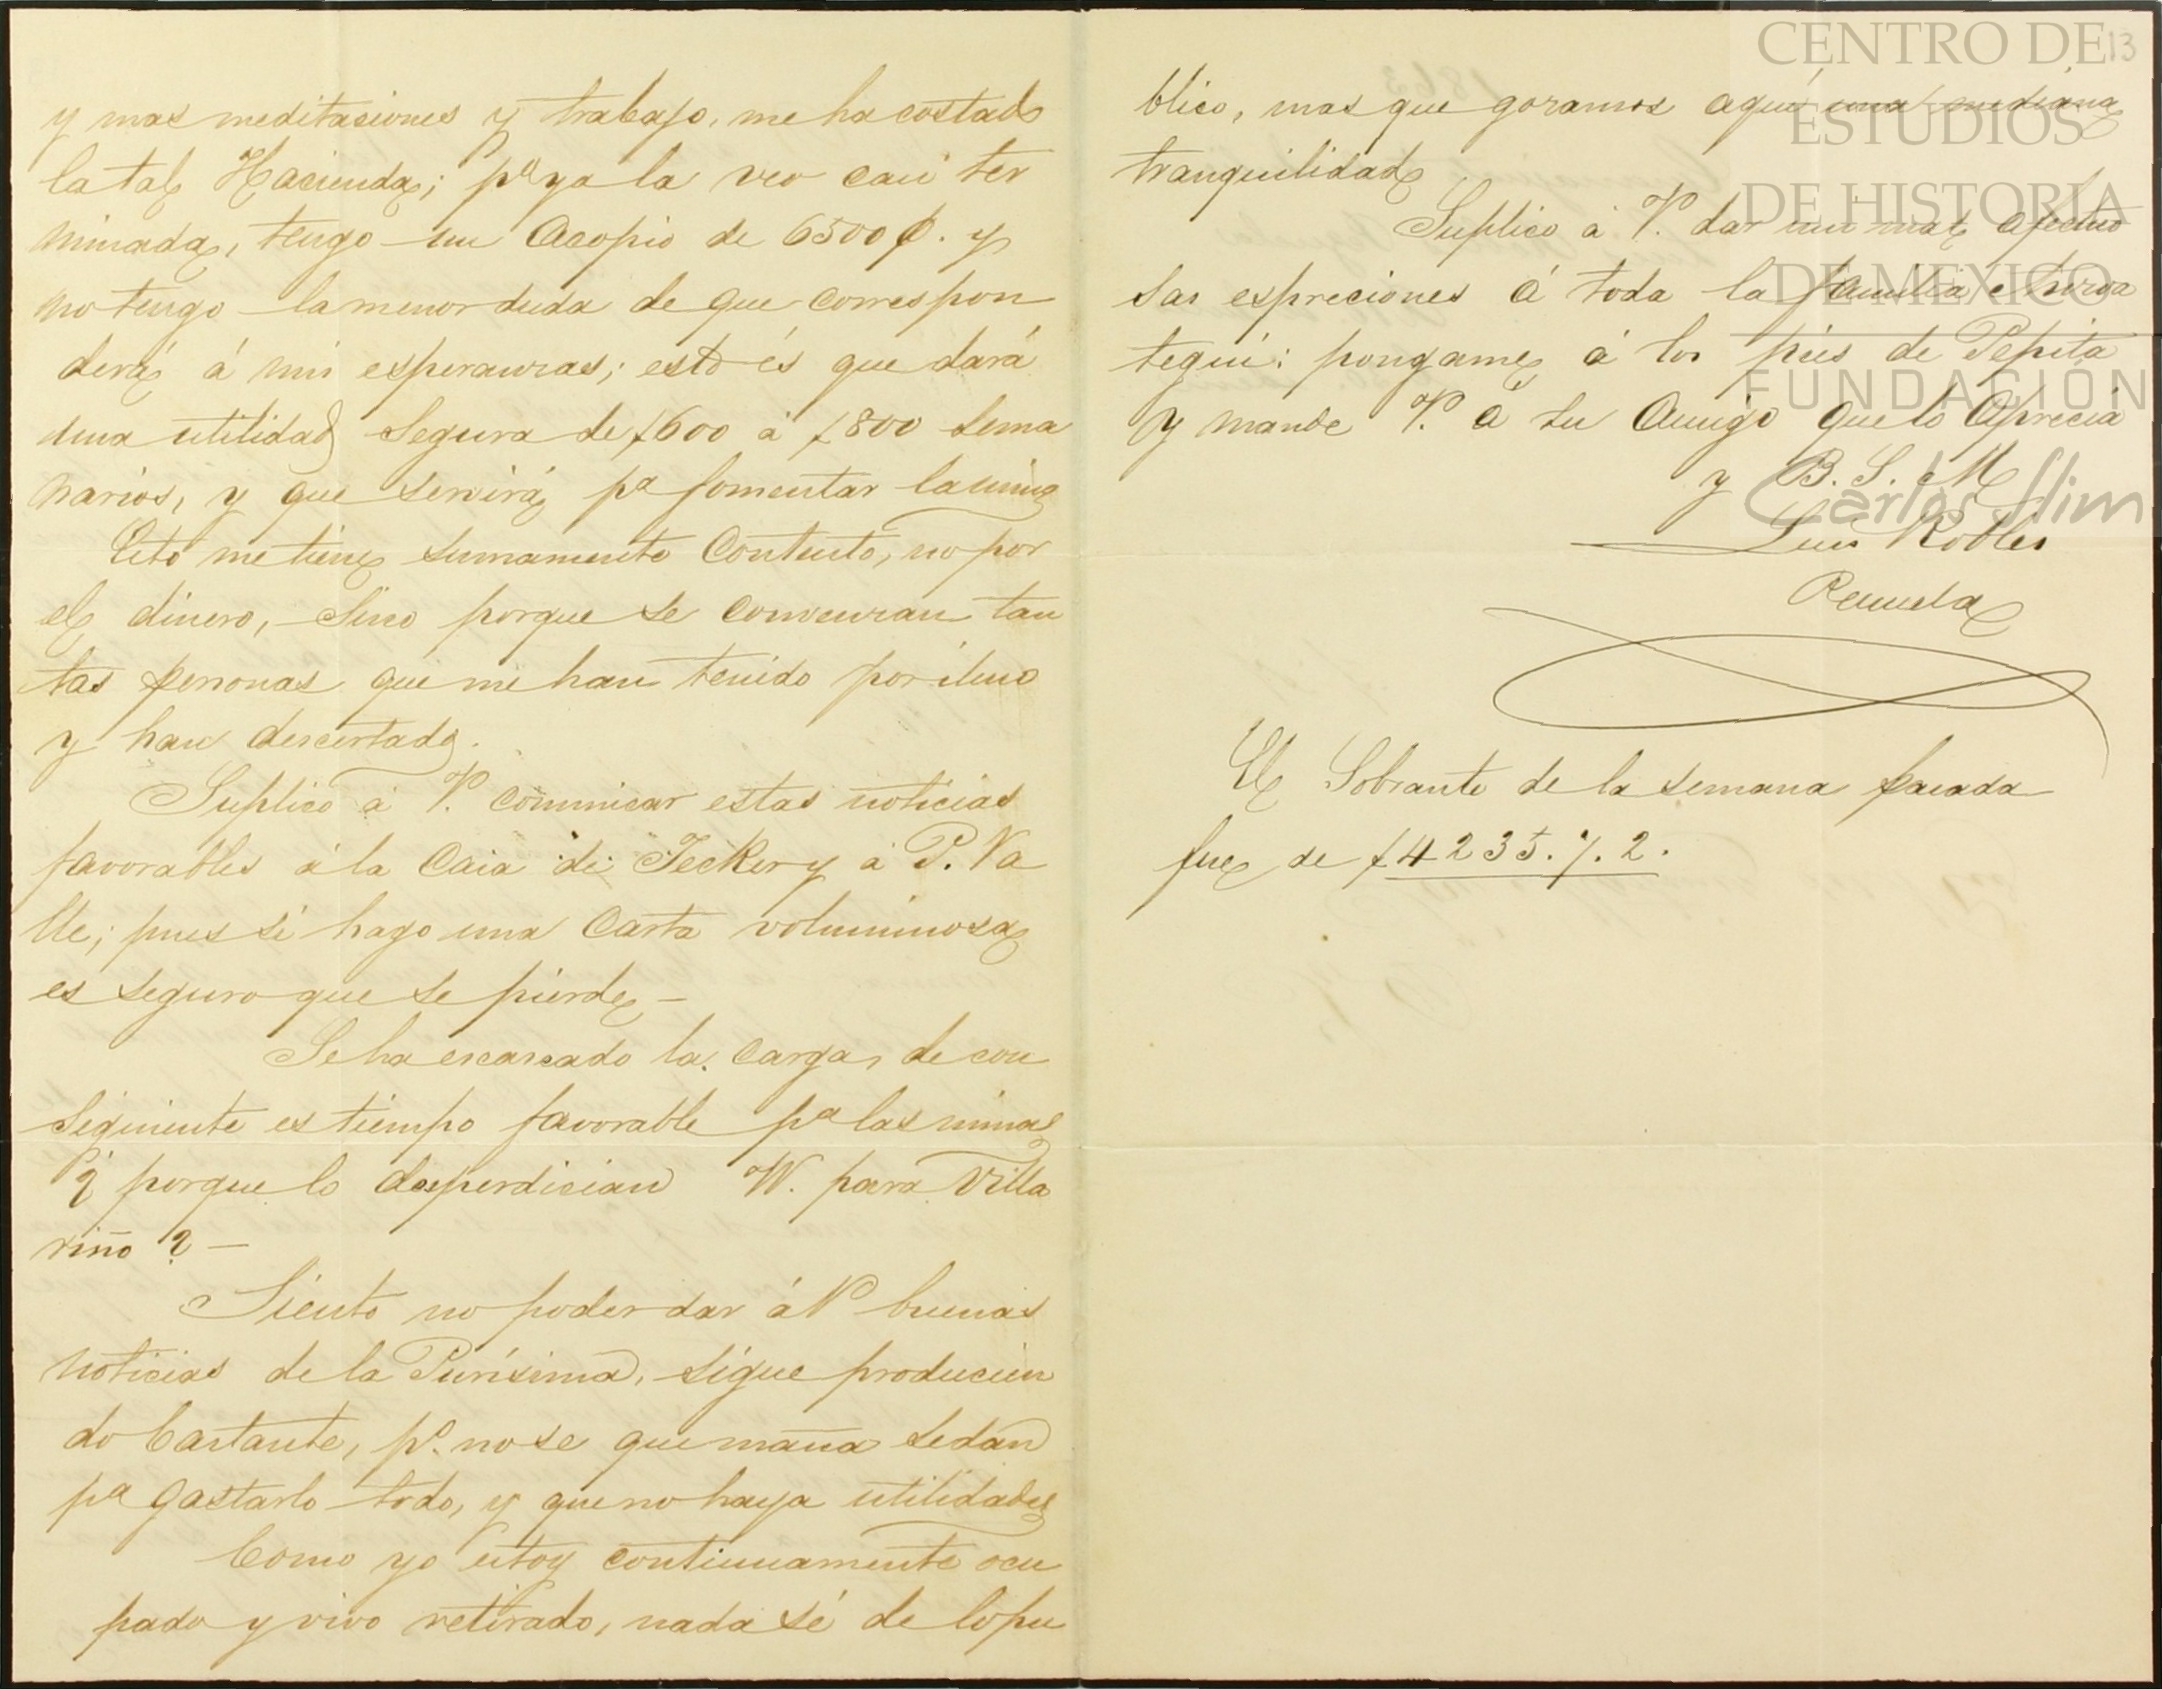 y mas meditaciones y trabajo, me ha costado
la tal Hacienda; pº ya la veo casi ter
minada, tengo un acopio de 6500 y
no tengo la menor duda de que correspon
derá á mis esperanzas; esto és que dará
una utilidad segura de $600 á $800 sema
narios, y que servirá pª fomentar la mina
Esto me tiene sumamente contento, no por
el dinero, sino porque se convenzan tan
tas personas que me han tenido por iluso
y han desertado.
Suplico á V. comunicar estas noticias
favorables á la Casa de Jecker y á P. Va
lle; pues si hago una Carta voluminosa
es seguro que se pierde —
Se ha escaseado la carga, de con
siguiente es tiempo favorable pª las minas
¿ porque lo desperdician VV. para Villa
rino ? —
Siento no poder dar á V buenas
noticias de la Purísima, sigue producien
do bastante, pº. no se que maña se dan
pª gastarlo todo, y que no haya utilidades
Como yo estoy continuamente ocu
pado y vivo retirado, nada sé de lo pu
blico, mas que gozamos aqui una mediana
tranquilidad
Suplico á V. dar mis mas afectuo
sas espreciones á toda la familia
tegui: pongame á los piés de Pepita
y mande V. á su Amigo que lo aprecia
y B. S. M
Luis Robles
Pezuela
El Sobrante de la semana pasada
fue de $4235.7.2.
13
CENTRO DE
ESTUDIOS
DE HISTORIA
DE MEXICO
FUNDACIÓN
Carlos Slim